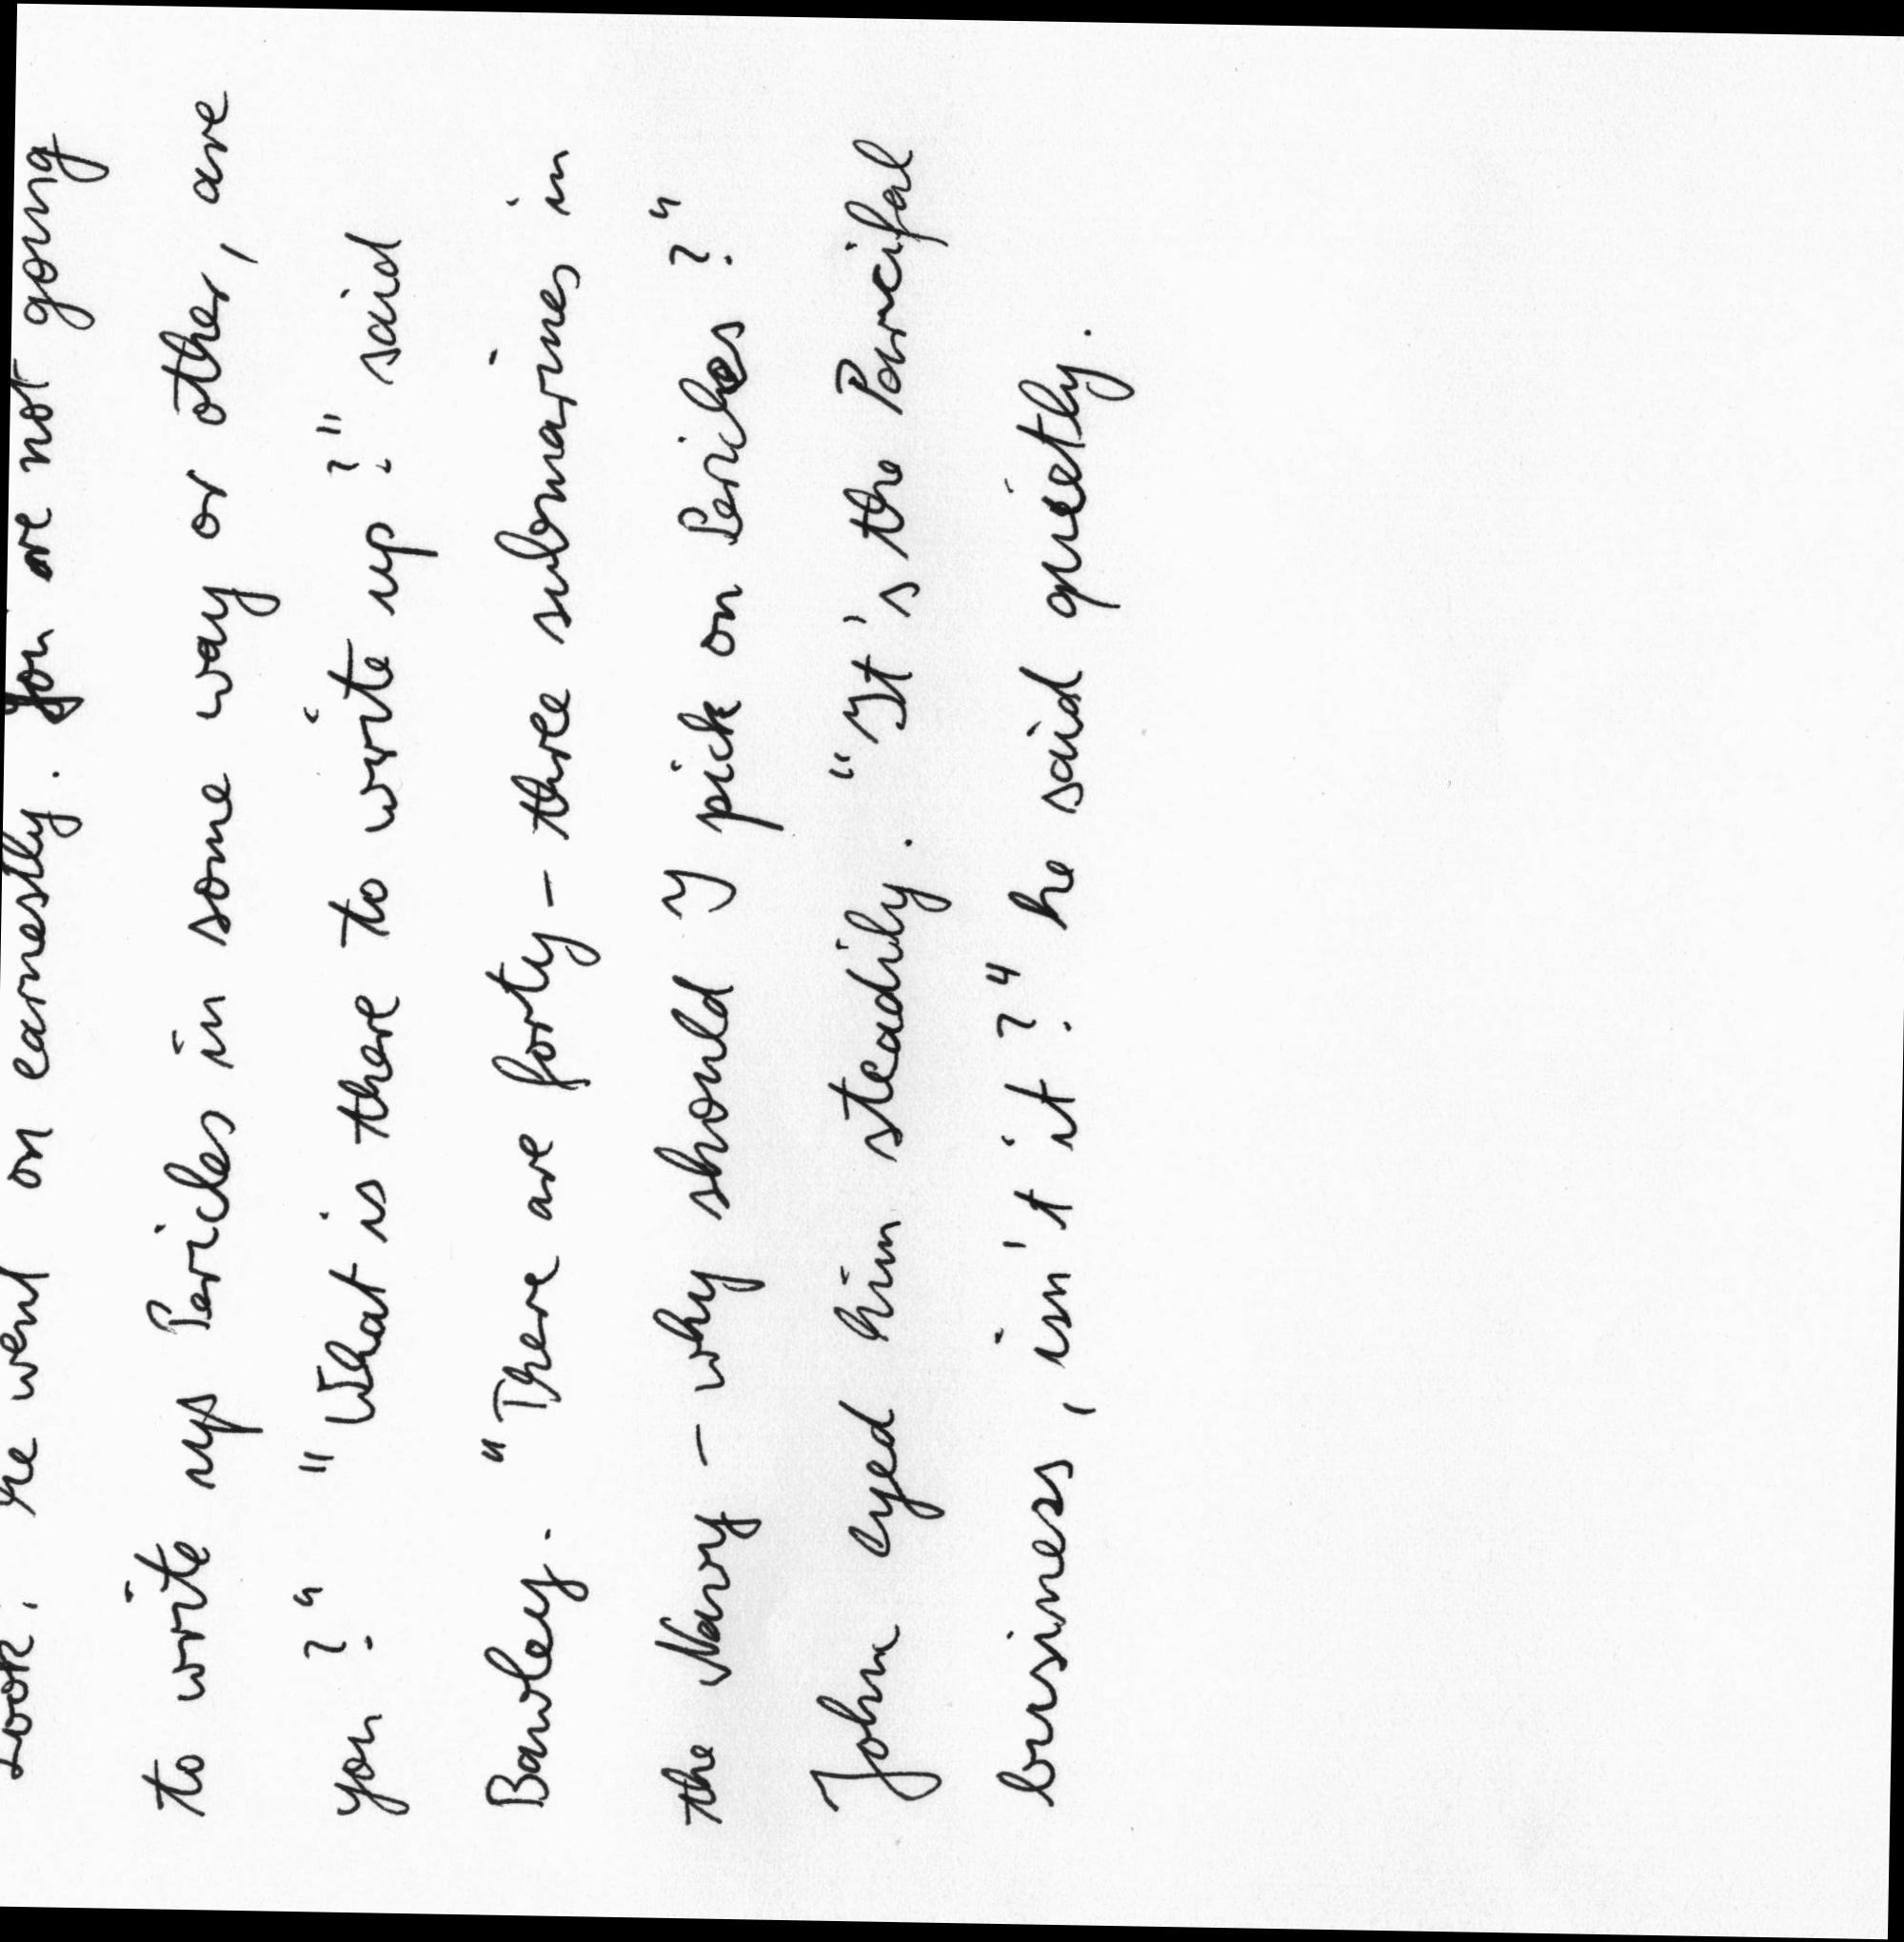 Look, he went on earnestly. You are not going
to write up Pericles in some way or other, are
you?" "What is there to write up?" said
Bawley. "There are forty-three submarines in
the Navy - why should I pick on Pericles?"
John eyed him steadily. "It's the Parcifal
business, isn't it?" he said quietly.